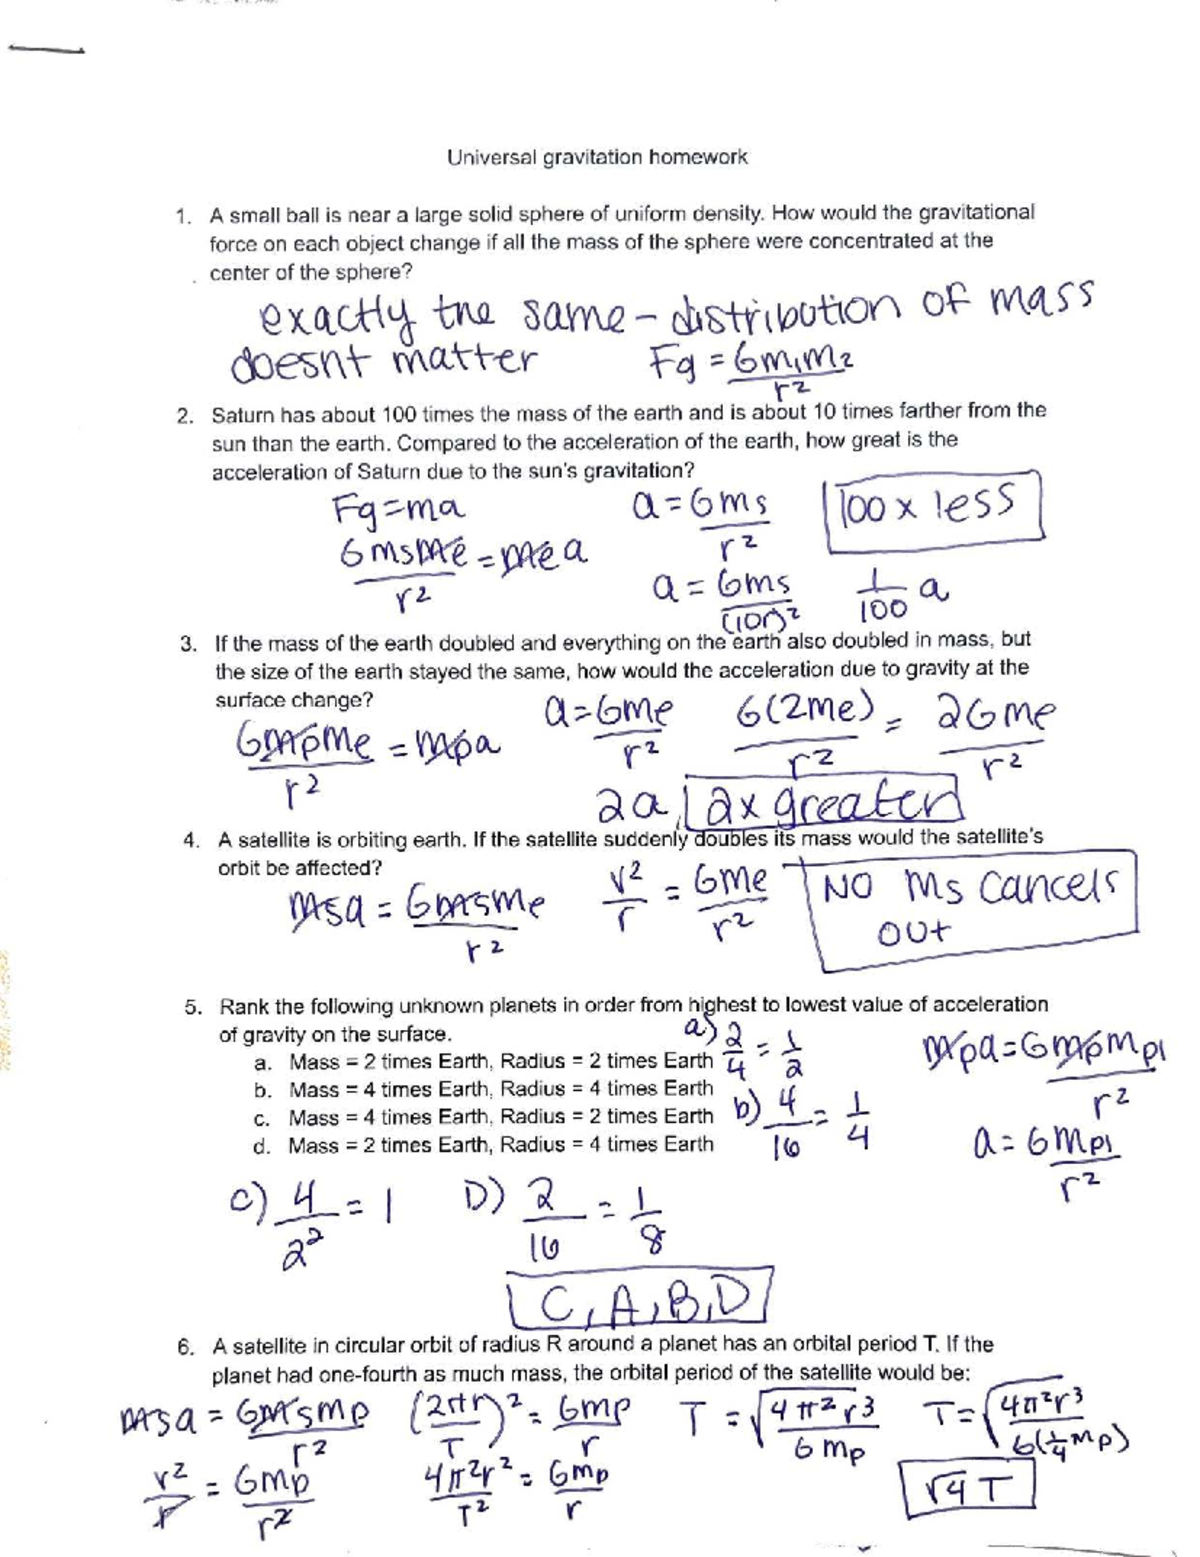 Universal gravitation homework
1. A small ball is near a large solid sphere of uniform density. How would the gravitational
force on each object change if all the mass of the sphere were concentrated at the
center of the sphere?
exactly the same - distribution of mass
doesnt matter Fg = Gm₁m₂/r²
2. Saturn has about 100 times the mass of the earth and is about 10 times farther from the
sun than the earth. Compared to the acceleration of the earth, how great is the
acceleration of Saturn due to the sun's gravitation?
Fg=ma a=Gms/r² 100 x less
Gmsme/r² = mea
a = Gms/(10r)² 1/100 a
3. If the mass of the earth doubled and everything on the earth also doubled in mass, but
the size of the earth stayed the same, how would the acceleration due to gravity at the
surface change?
a=Gme/r² G(2me)/r² = 2Gme/r²
Gmpme/r² = mpa
2a, 2x greater
4. A satellite is orbiting earth. If the satellite suddenly doubles its mass would the satellite's
orbit be affected?
msa = Gmsme/r² v²/r = Gme/r² NO ms cancels
out
5. Rank the following unknown planets in order from highest to lowest value of acceleration
of gravity on the surface.
a. Mass = 2 times Earth, Radius = 2 times Earth
b. Mass = 4 times Earth, Radius = 4 times Earth
c. Mass = 4 times Earth, Radius = 2 times Earth
d. Mass = 2 times Earth, Radius = 4 times Earth
a) 2/4 = 1/2
b) 4/16 = 1/4
mpa=Gmpmpl/r²
a=Gmpl/r²
c) 4/2² = 1 D) 2/16 = 1/8
C, A, B, D
6. A satellite in circular orbit of radius R around a planet has an orbital period T. If the
planet had one-fourth as much mass, the orbital period of the satellite would be:
msa = Gmsmp/r² (2πr/T)² = Gmp/r T = √4π²r³/Gmp T=√4π²r³/G(¼mp)
v²/r = Gmp/r² 4π²r²/T² = Gmp/r √4 T